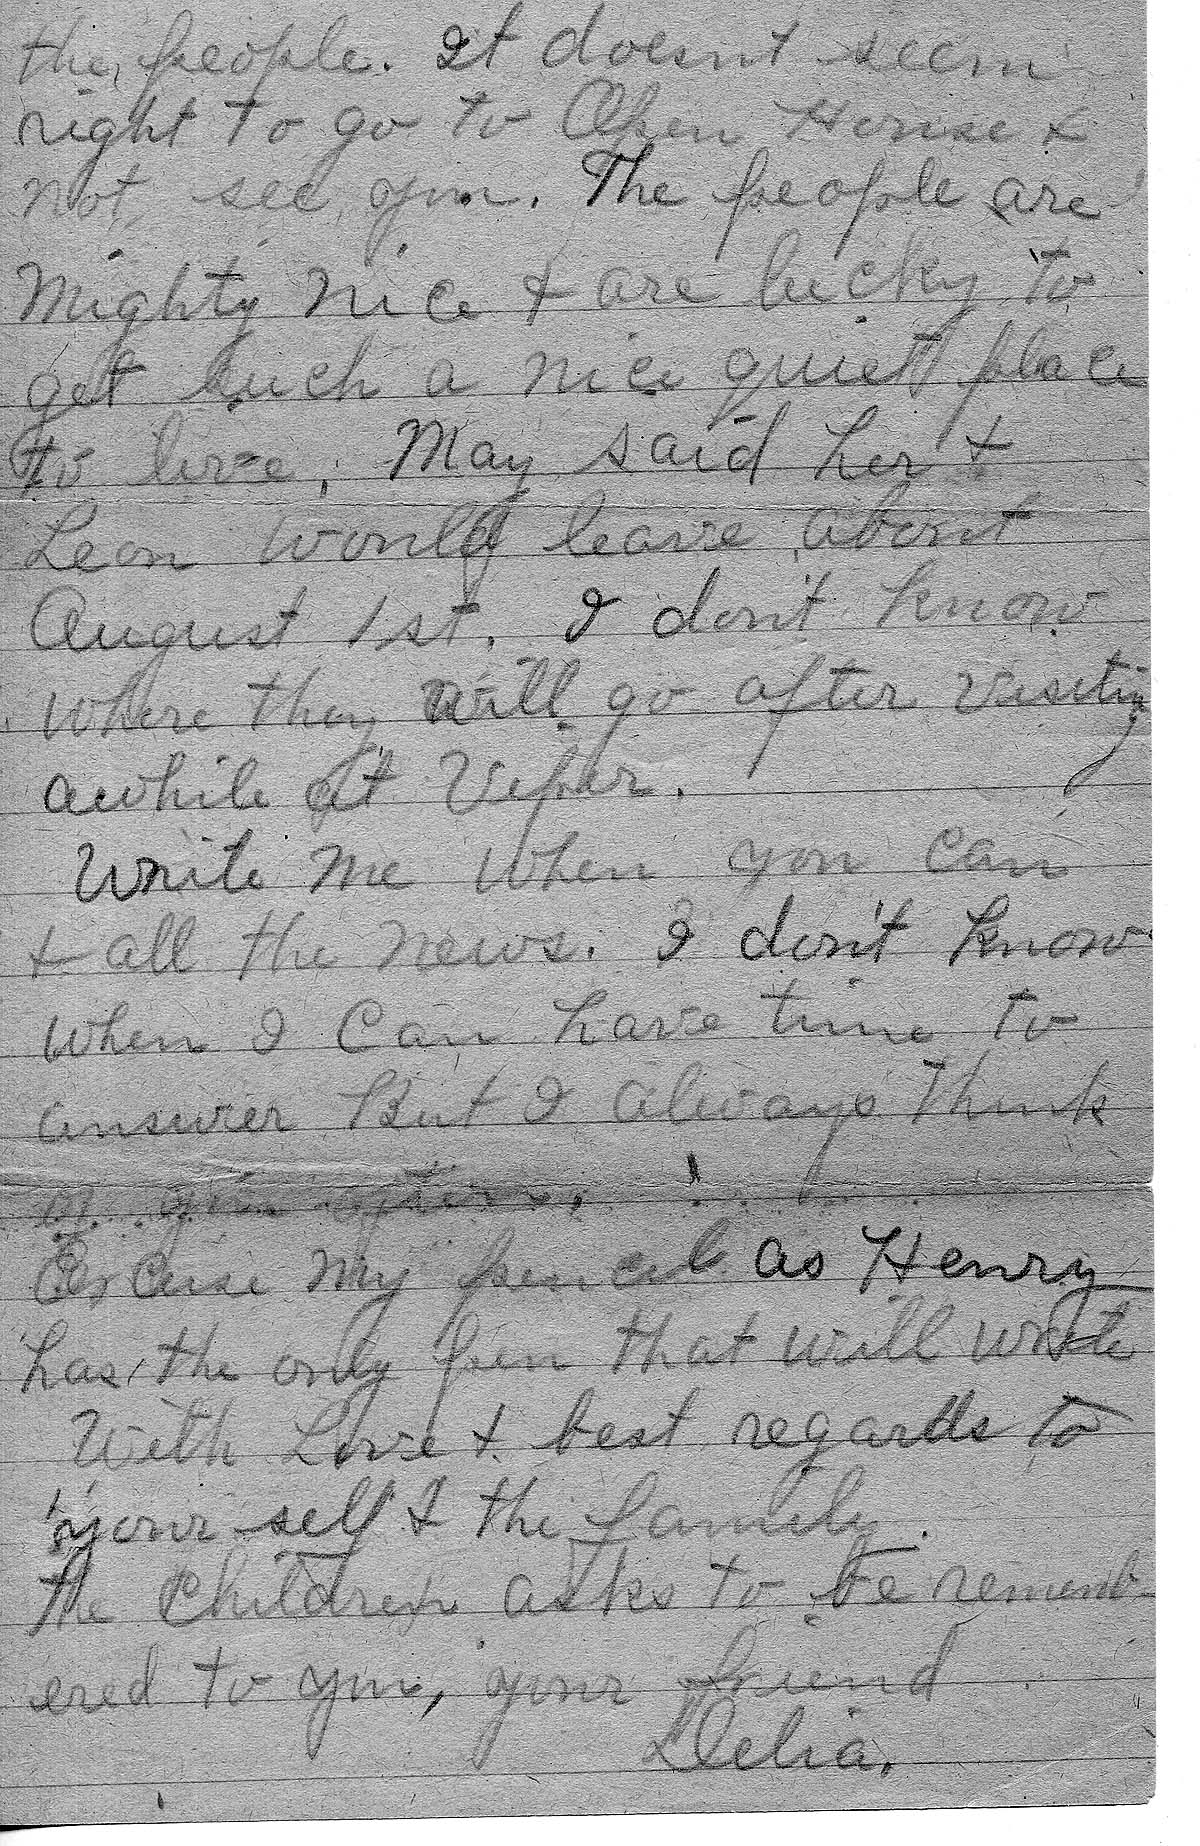 the people. It doesnt seem
right to go to Open House &
not see you. The people are
mighty nice & are lucky to
get such a nice quiet place
to live. May said her &
Leon would leave about
August 1st. I don't know
where they will go after visiting
awhile at Viper.
Write me when you can
& all the news. I don't know
when I can have time to
answer But I always think
of you often.
Excuse my pencil as Henry
has the only pen that will write
With Love & best regards to
your self & the family.
the children asks to be rememb
ered to you, your friend
Delia.